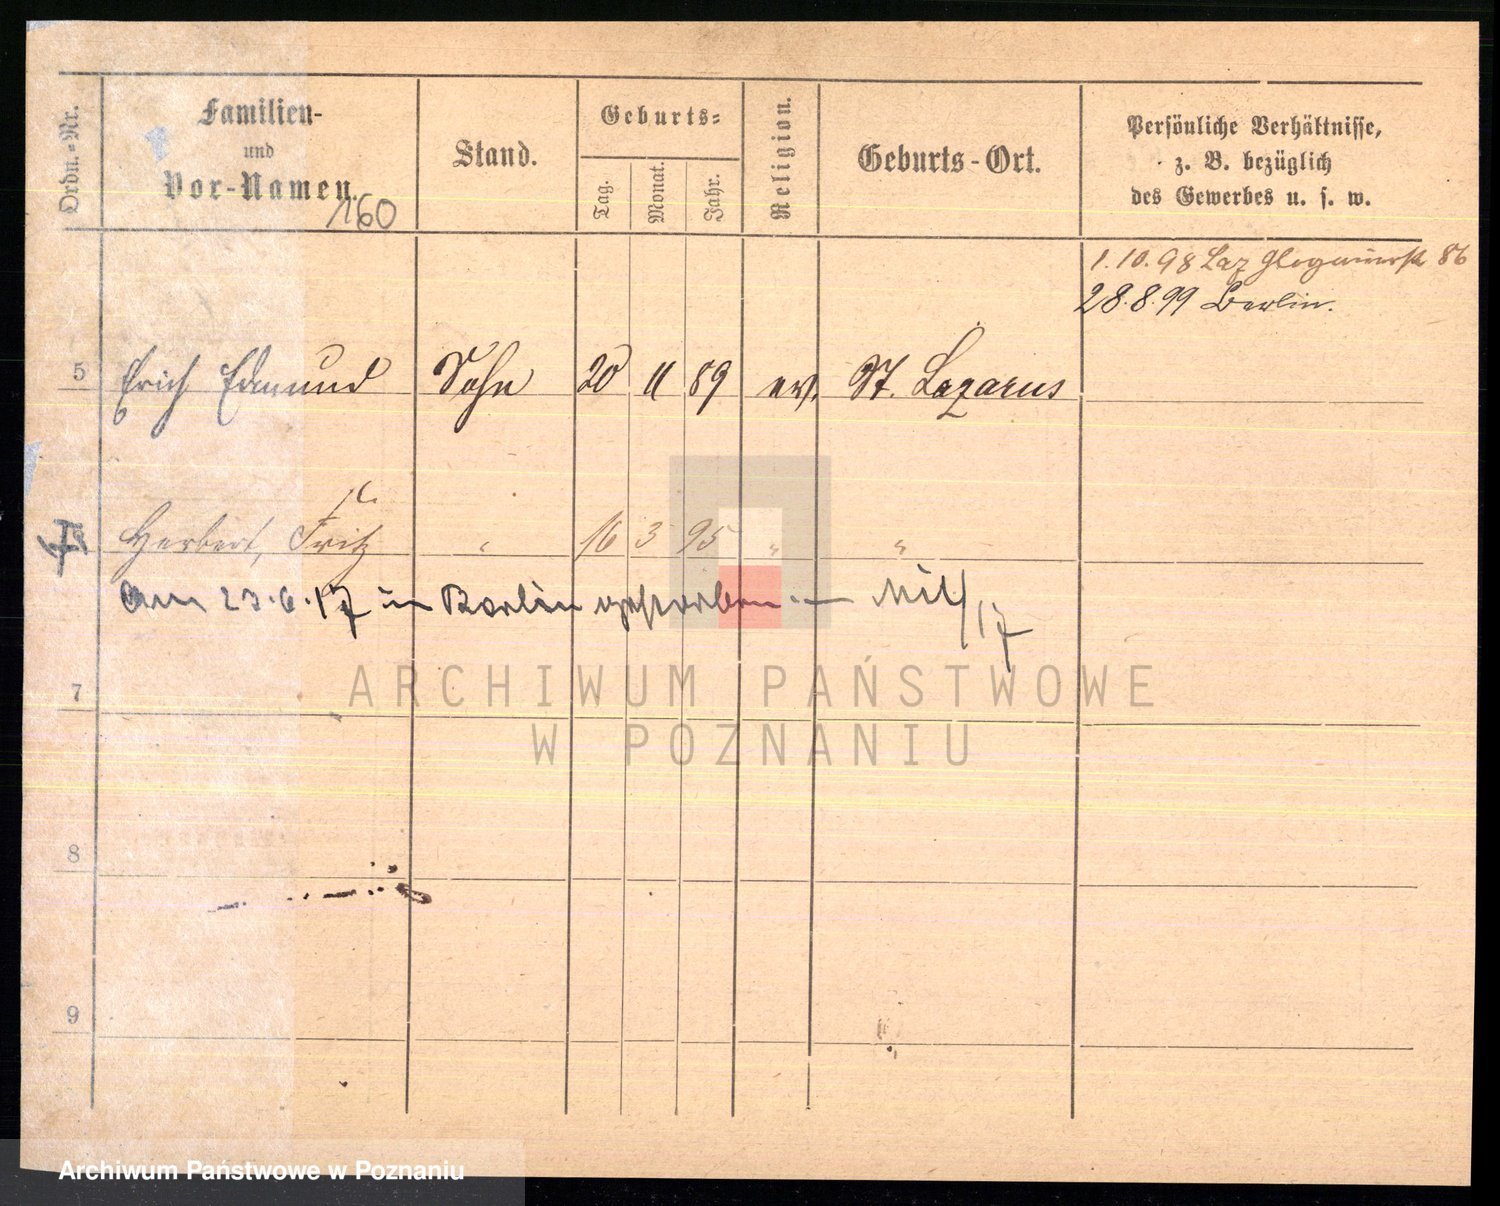 Ordn.=Nr.
Familien-
und
Vor-Namen.
160
Stand.
Geburts=
Tag.
Monat.
Jahr.
Religion.
Geburts-Ort.
Persönliche Verhältnisse,
z. B. bezüglich
des Gewerbes u. s. w.
1. 10. 98 Laz Glogauerstr 86
28.8.99 Berlin.
5 Erich Edmund Sohn 20 11 89 ev. St. Lazarus
Herbert, Fritz " 16 3 95 " "
Am 23.6.17 in Berlin gestorben. —
7
8
9
ARCHIWUM PAŃSTWOWE
W POZNANIU
Archiwum Państwowe w Poznaniu